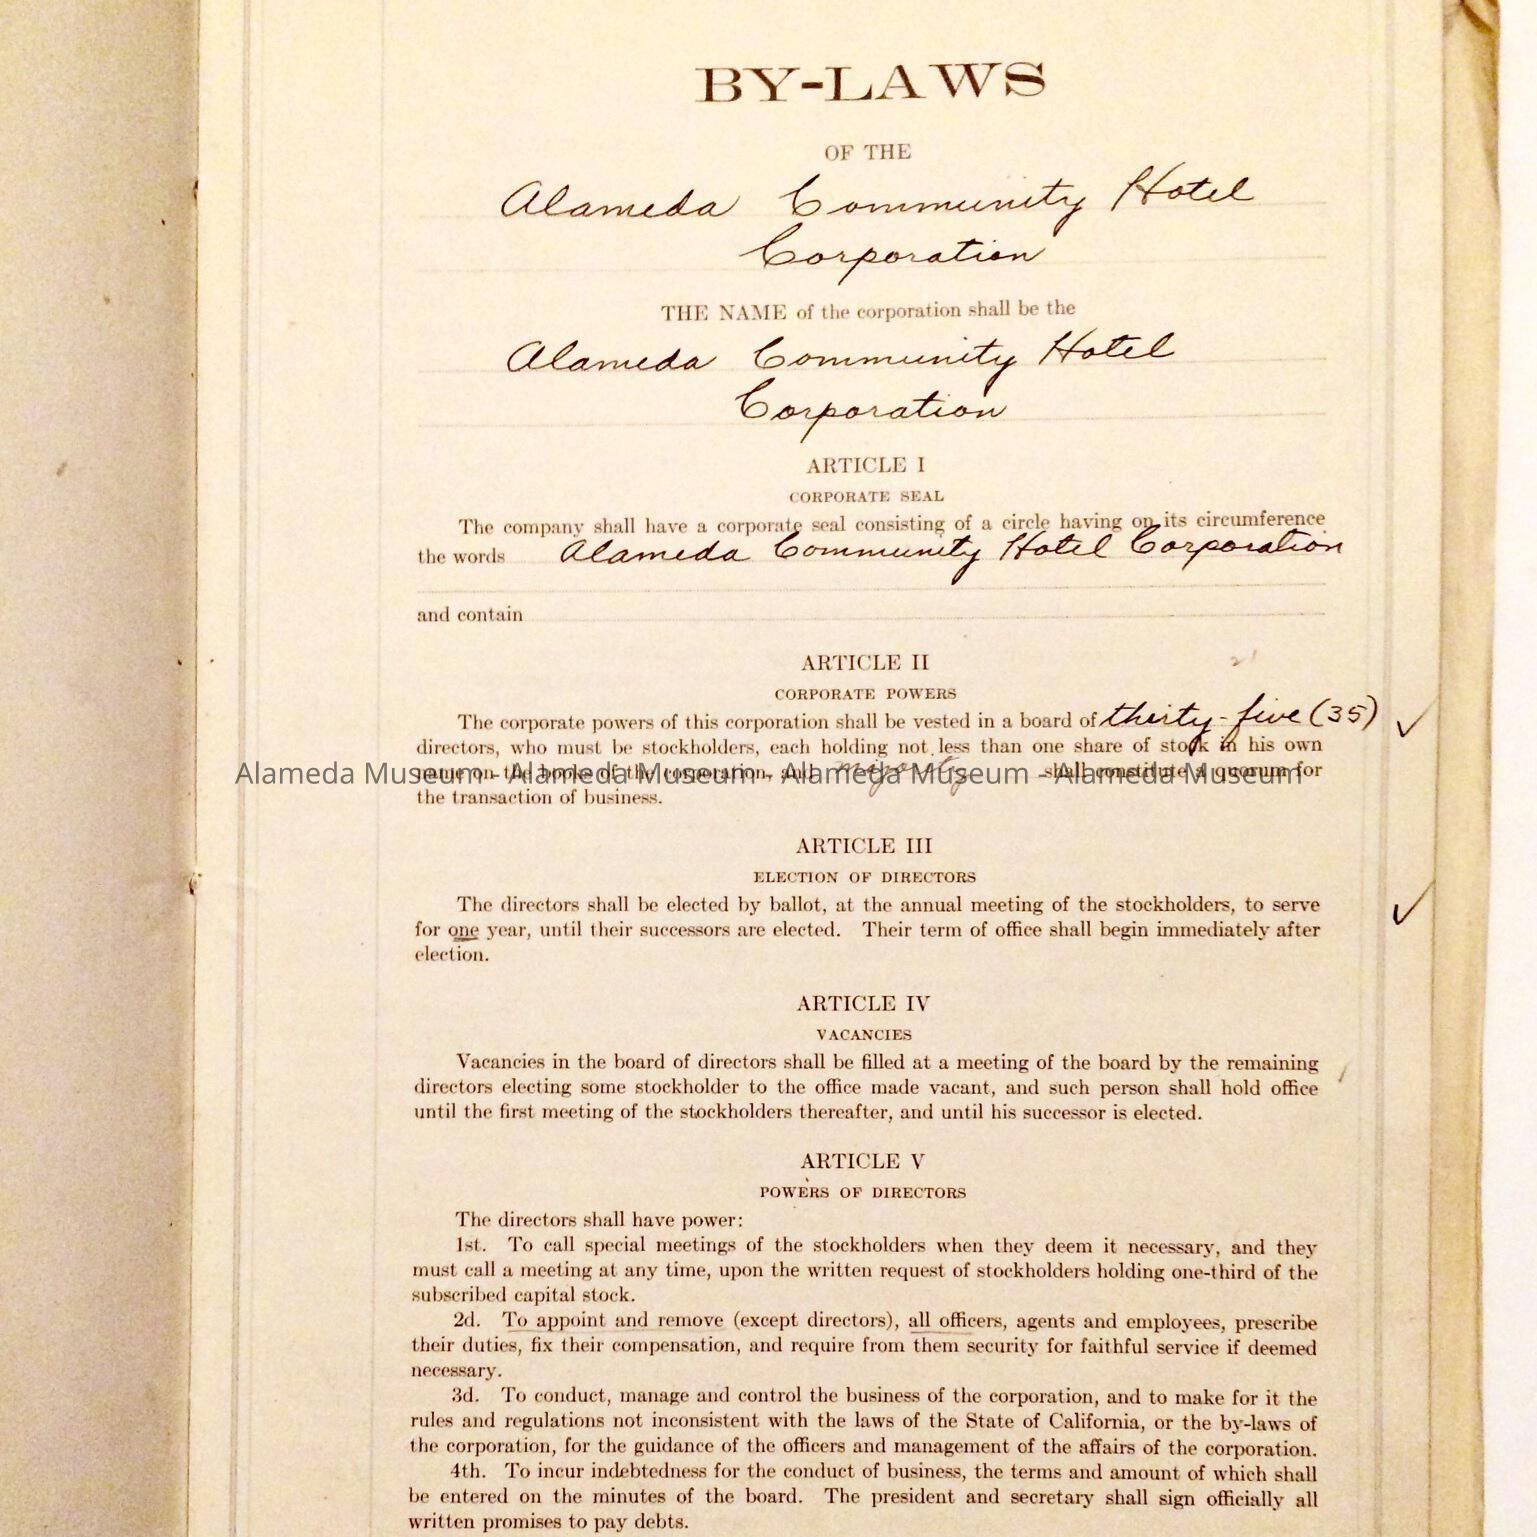 BY-LAWS
OF THE
Alameda Community Hotel
Corporation
THE NAME of the corporation shall be the
Alameda Community Hotel
Corporation
ARTICLE I
CORPORATE SEAL
The company shall have a corporate seal consisting of a circle having on its circumference
the words Alameda Community Hotel Corporation
and contain
ARTICLE II
CORPORATE POWERS
The corporate powers of this corporation shall be vested in a board of thirty-five (35)
directors, who must be stockholders, each holding not less than one share of stock in his own
name on the books of the corporation, and majority shall constitute a quorum for
Alameda Museum - Alameda Museum - Alameda Museum - Alameda Museum
the transaction of business.
ARTICLE III
ELECTION OF DIRECTORS
The directors shall be elected by ballot, at the annual meeting of the stockholders, to serve
for one year, until their successors are elected. Their term of office shall begin immediately after
election.
ARTICLE IV
VACANCIES
Vacancies in the board of directors shall be filled at a meeting of the board by the remaining
directors electing some stockholder to the office made vacant, and such person shall hold office
until the first meeting of the stockholders thereafter, and until his successor is elected.
ARTICLE V
POWERS OF DIRECTORS
The directors shall have power:
1st. To call special meetings of the stockholders when they deem it necessary, and they
must call a meeting at any time, upon the written request of stockholders holding one-third of the
subscribed capital stock.
2d. To appoint and remove (except directors), all officers, agents and employees, prescribe
their duties, fix their compensation, and require from them security for faithful service if deemed
necessary.
3d. To conduct, manage and control the business of the corporation, and to make for it the
rules and regulations not inconsistent with the laws of the State of California, or the by-laws of
the corporation, for the guidance of the officers and management of the affairs of the corporation.
4th. To incur indebtedness for the conduct of business, the terms and amount of which shall
be entered on the minutes of the board. The president and secretary shall sign officially all
written promises to pay debts.